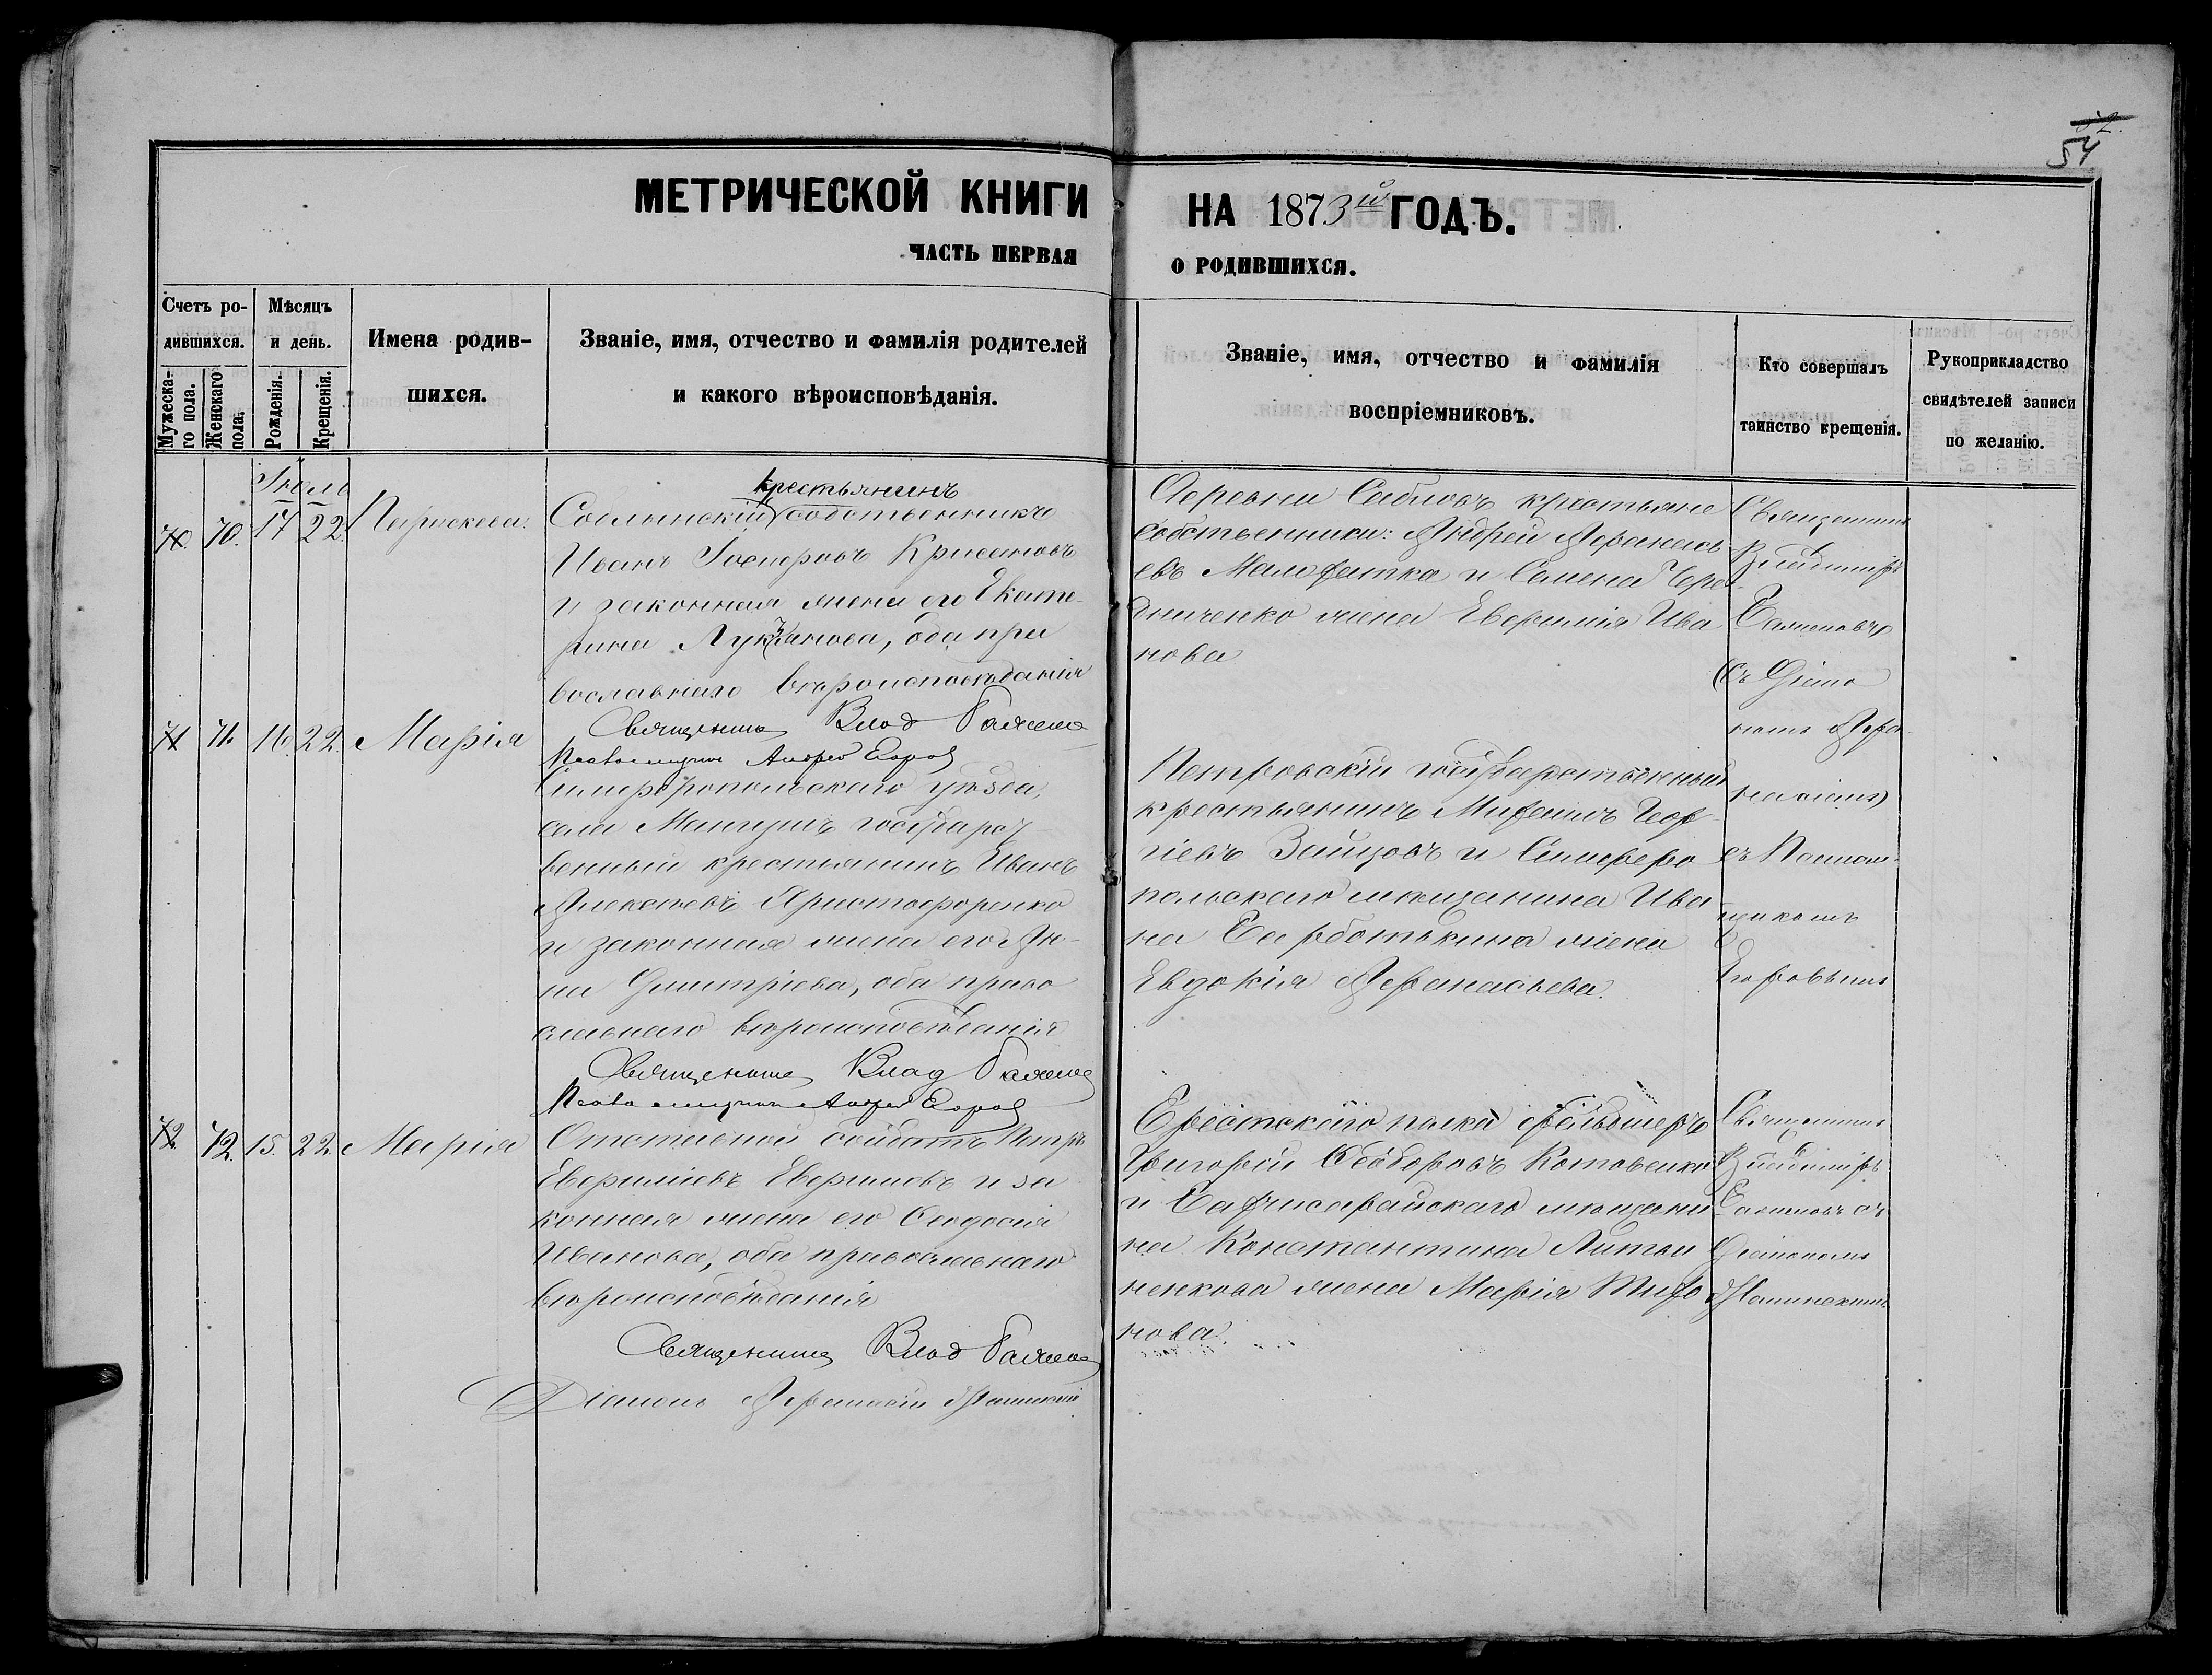 54
МЕТРИЧЕСКОЙ КНИГИ НА 1873й ГОДЪ.
ЧАСТЬ ПЕРВАЯ О РОДИВШИХСЯ.
Счетъ родившихся.
Мужескаго пола.
Женскаго пола.
Мѣсяцъ и день.
Рожденія.
Крещенія.
Имена родившихся.
Званіе, имя, отчество и фамилія родителей
и какого вѣроисповѣданія.
Званіе, имя, отчество и фамилія
воспріемниковъ.
Кто совершалъ
таинство крещенія.
Рукоприкладство
свидѣтелей записи
по желанію.
Іюль
70. 70. 17 22. Параскева.
крестьянинъ
собственникъ
Иванъ Іосифовъ
и законная жена его Екате-
рина, оба пра
вославнаго вѣроисповѣданія
Священникъ Влад
Псаломщикъ Андрей Егоров
Деревни крестьяне
собственники: Андрей Афанась
евъ и Семена Чере
дниченко жена Евфимія Ива
нова
Священникъ
Владиміръ
Баженовъ
съ Діако
номъ Афа
насіемъ
съ Псалом-
щикомъ
Егоровымъ
71 71. 16. 22. Марія
Симферопольскаго уѣзда,
села Мангушъ государст
венный крестьянинъ Иванъ
Алексѣевъ Христофоренко
и законная жена его Ан-
на Димитріева, оба право
славнаго вѣроисповѣданія
Священникъ Влад
Псаломщикъ Андрей Егоров
Петровскій государственный
крестьянинъ Геор
гіевъ Зайцовъ и Симферо
польскаго мѣщанина Ива
на жена
Евдокія Афанасьева.
72. 72. 15. 22. Марія
Отставной солдатъ Петръ
Евфиміевъ Евфимовъ и за
конная жена его Ѳеодосія
Иванова, оба православнаго
вѣроисповѣданія
Священникъ Влад
Діаконъ Афанасій
Брестскаго полка фельдшеръ
Григорій Ѳеодоровъ Котовенко
и Бахчисарайскаго мѣщани
на Константина
жена Марія Миро
нова.
Священникъ
Владиміръ
Баженовъ съ
Діакономъ